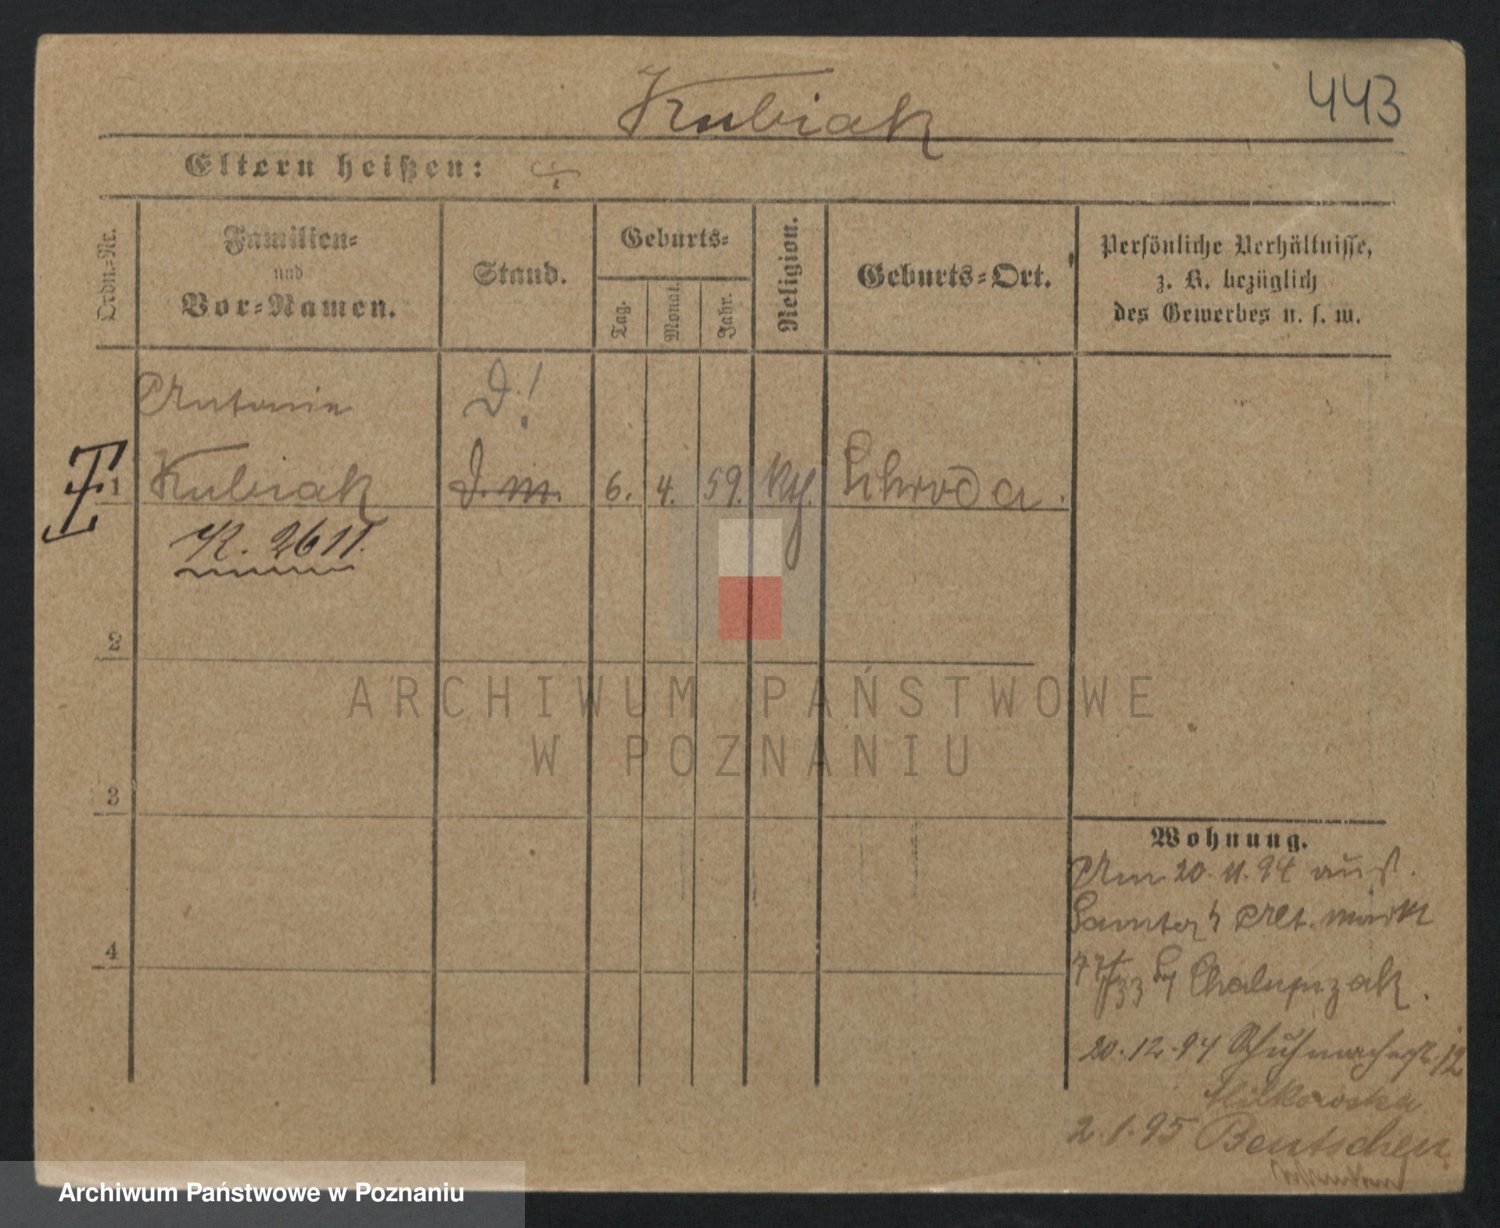 Kubiak
443
Eltern heißen:
Ordn.-Nr.
Familien-
und
Vor-Namen.
Stand.
Geburts-
Tag.
Monat.
Jahr.
Religion.
Geburts-Ort.
Persönliche Verhältnisse,
z. B. bezüglich
des Gewerbes u. s. w.
Antonie
D!
1 Kubiak D. m. 6. 4. 59. Schroda.
K. 2611.
2
3
4
Wohnung.
Am 20. 11. 94 aus
Samter Alt. Markt
77/33 Chalupzak.
20. 12. 94 12
Milkowska
2. 1. 95 Bentschen
ARCHIWUM PAŃSTWOWE
W POZNANIU
Archiwum Państwowe w Poznaniu